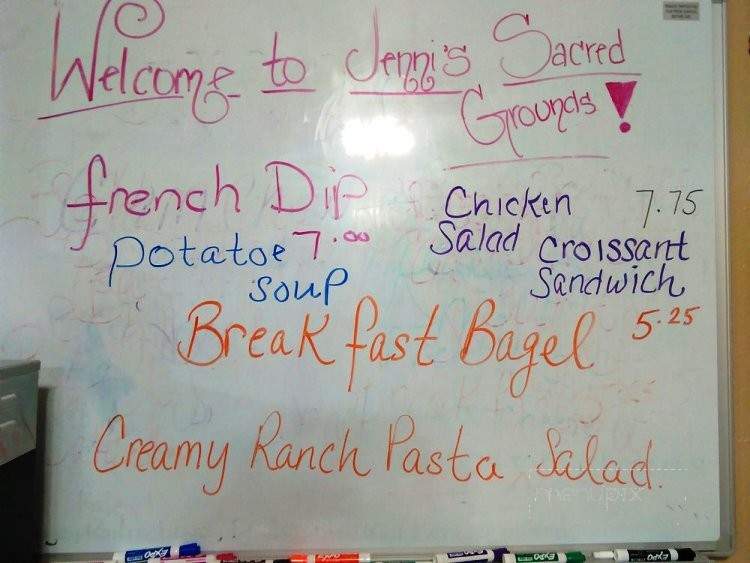 Welcome to Jenni's Sacred
Grounds!
french Dip
7.00
potatoe
soup
Chicken 7.75
Salad Croissant
Sandwich
Breakfast Bagel 5.25
Creamy Ranch Pasta Salad.
menupix
EXPO
EXPO
EXPO
EXPO
EXPO